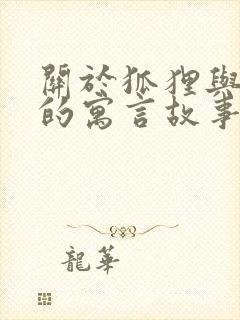 關於狐狸與
的寓言故事
龍華